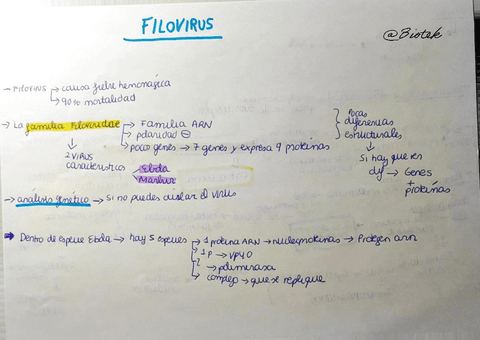 FILOVIRUS
@Biotek
- FILOVIRUS → causa fiebre hemorrágica
→ 90% mortalidad
→ La familia Filoviridae → Familia ARN
→ polaridad ⊖
→ pocos genes → 7 genes y expresa 9 proteínas
Pocas
diferencias
estructurales
↓
Si hay que ver
dif → Genes
+
proteínas
↓
2 VIRUS
característicos
Ebola
Marbur
→ análisis genético → Si no puedes aislar el virus
→ Dentro de especie Ebola → hay 5 especies → 1 proteína ARN → nucleoproteínas → Protegen arn
→ 1 p → VP40
→ polimerasa
complejo → que se replique